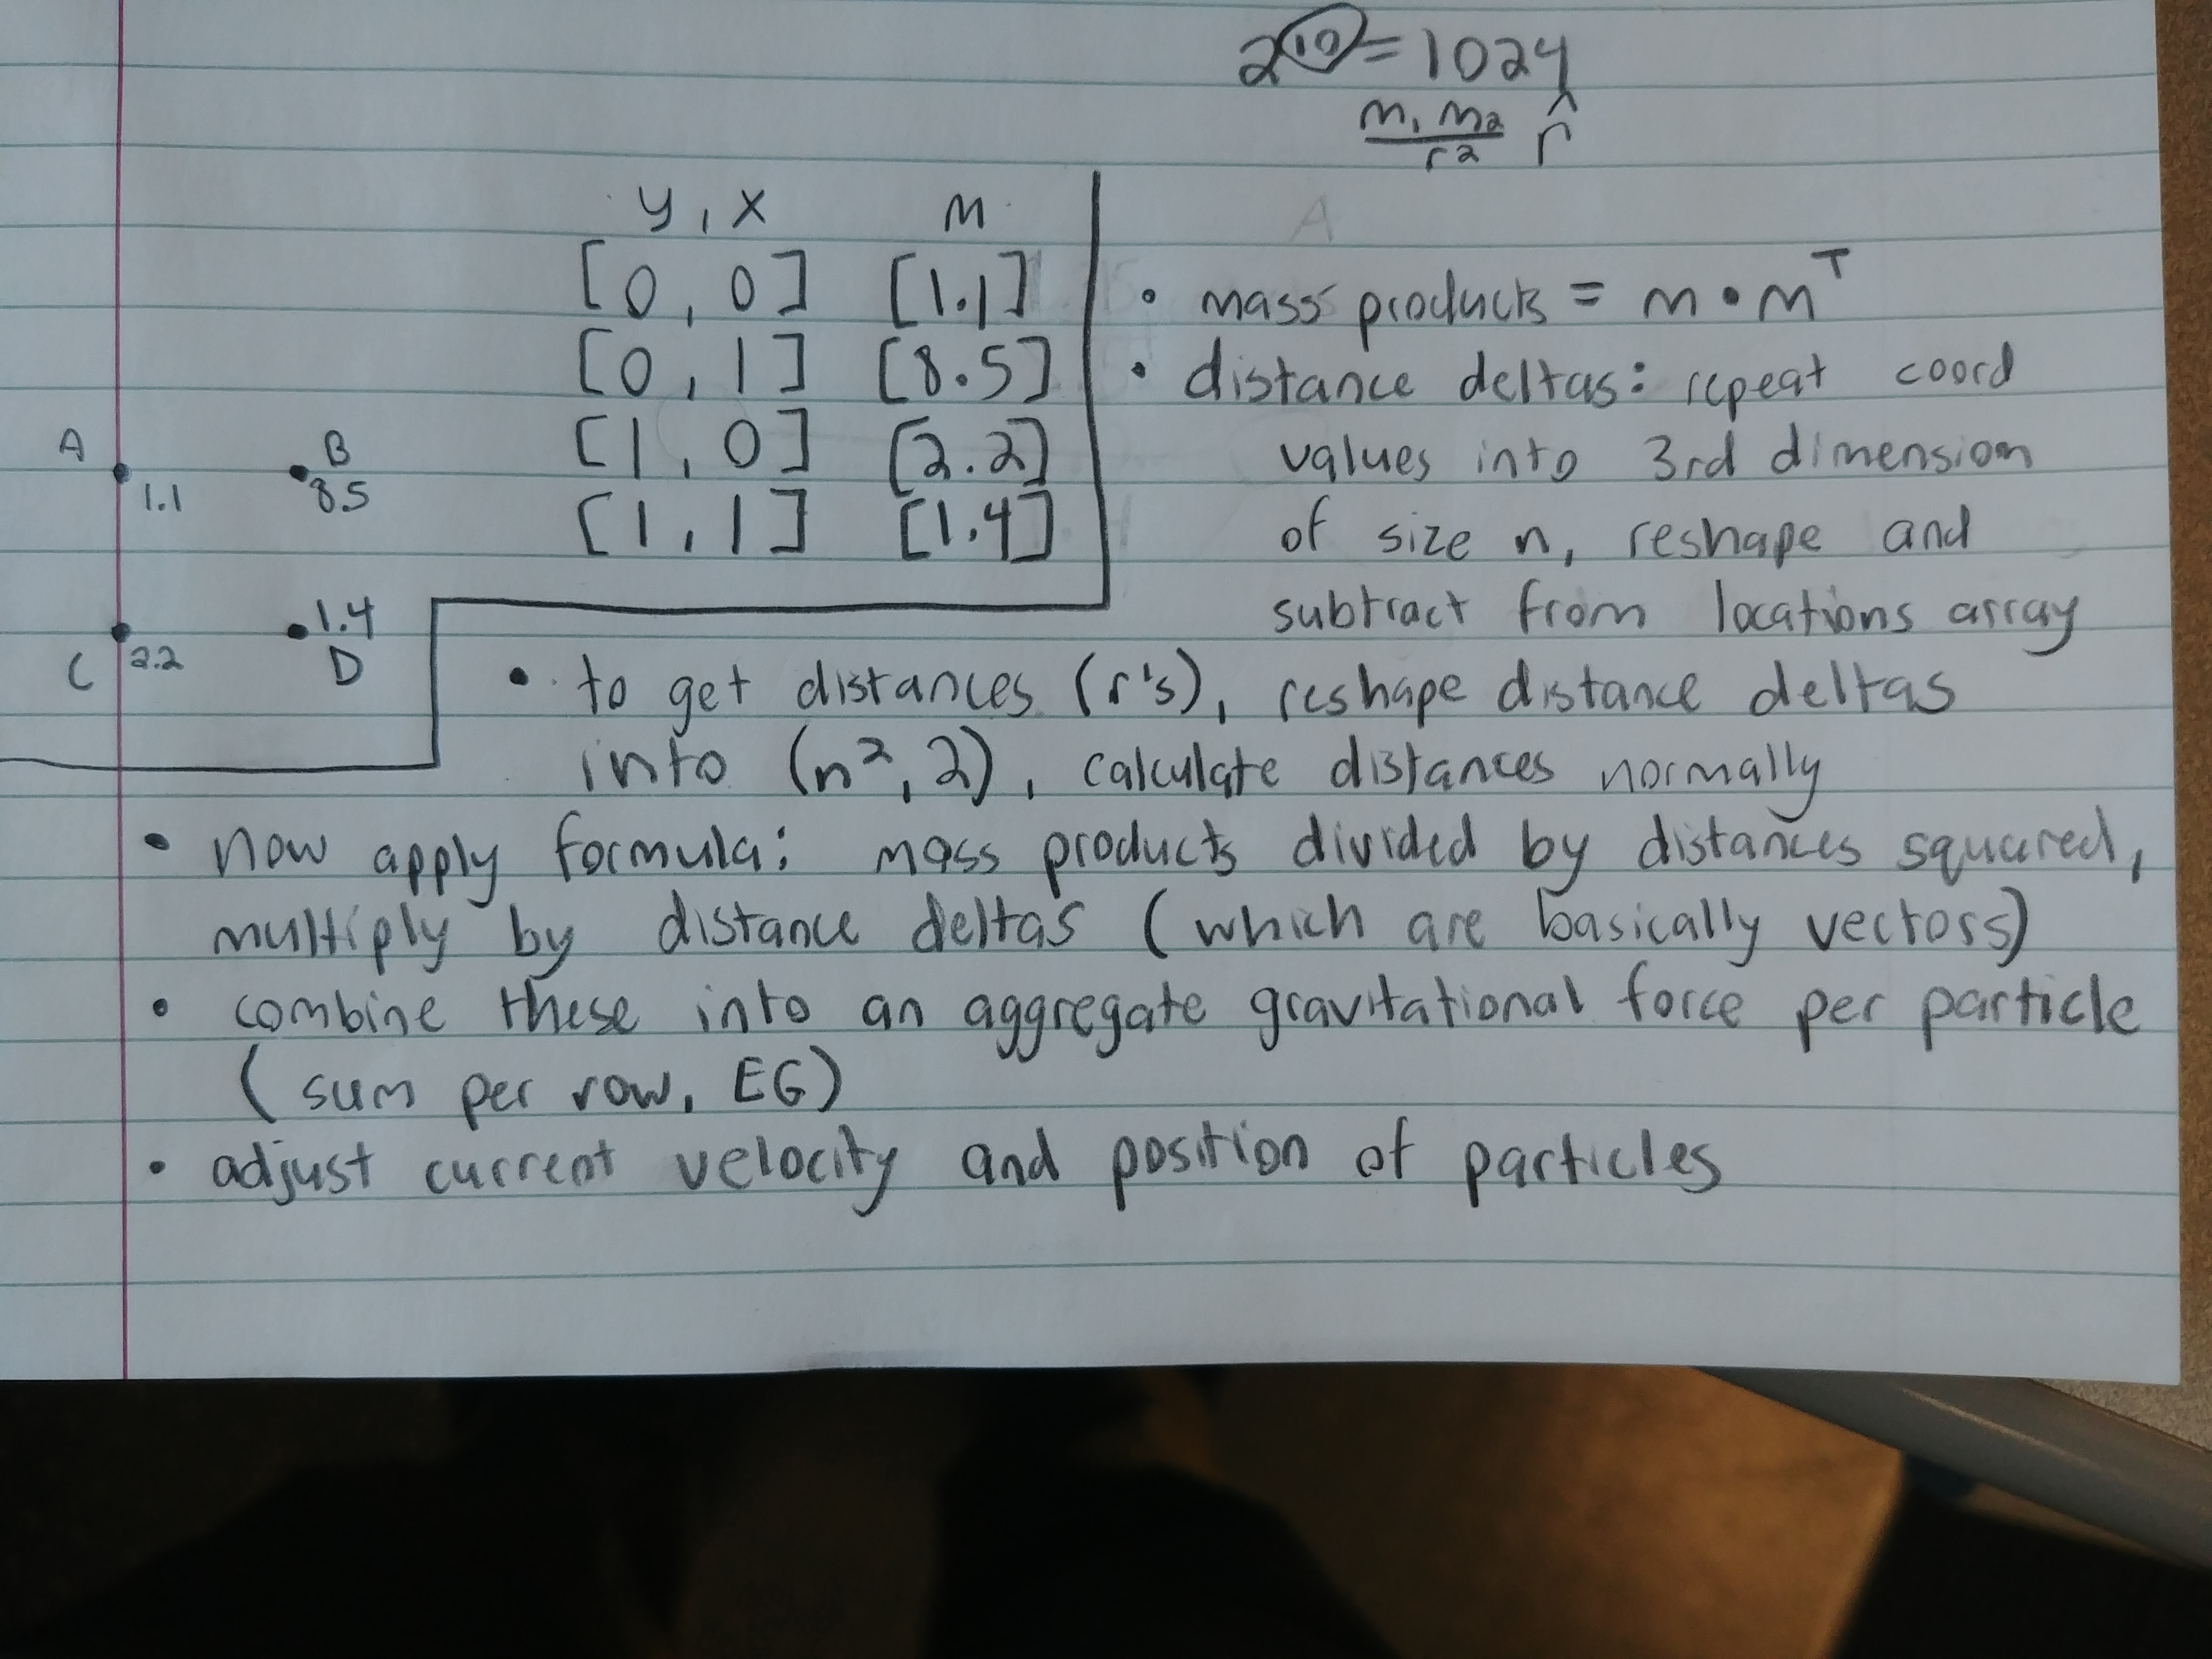 2^10 = 1024
m₁ m₂ / r² r̂
y, x    m
[0, 0] [1.1]
[0, 1] [8.5]
[1, 0] [2.2]
[1, 1] [1.4]
A B
1.1 8.5
1.4
C 2.2 D
• mass products = m • mᵀ
• distance deltas: repeat coord
values into 3rd dimension
of size n, reshape and
subtract from locations array
• to get distances (r's), reshape distance deltas
into (n², 2), calculate distances normally
• now apply formula: mass products divided by distances squared,
multiply by distance deltas (which are basically vectors)
• combine these into an aggregate gravitational force per particle
(sum per row, EG)
• adjust current velocity and position of particles